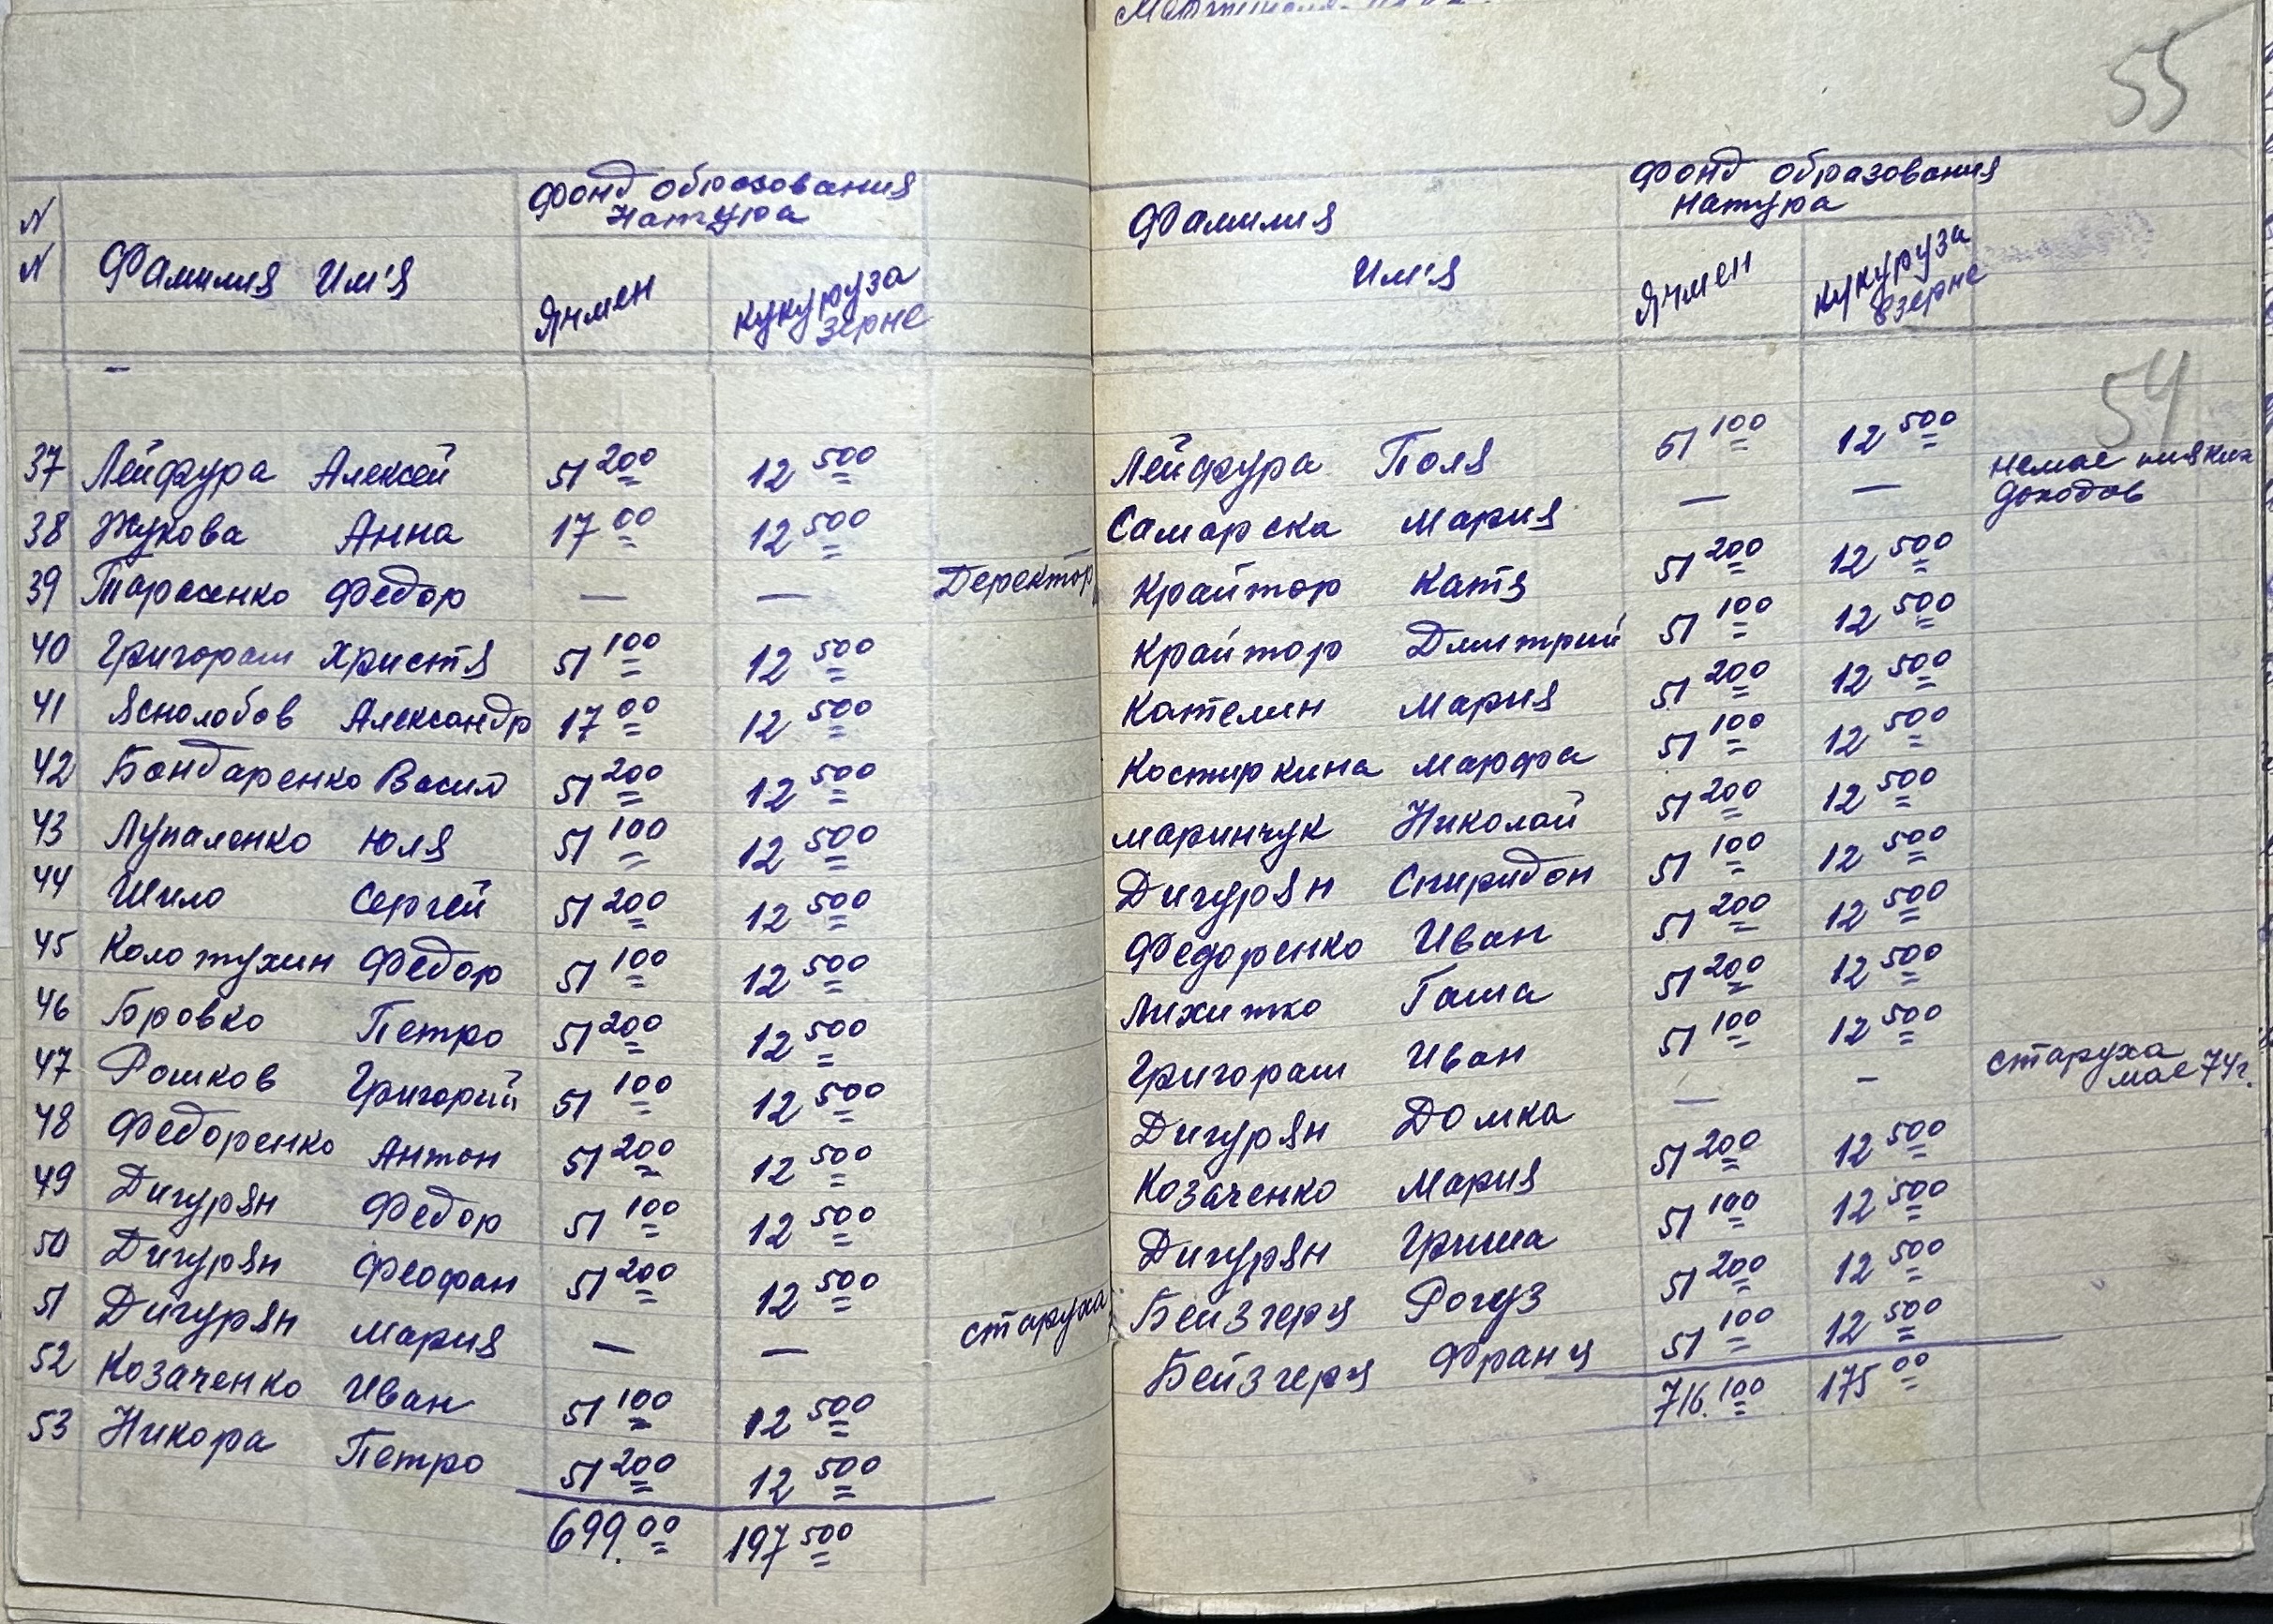 55
N
N
Фамилия Им'я
Фонд образования
Натура
Ячмен
кукуруза
зерне
37 Лейфура Алексей 51 200 12 500
38 Жукова Анна 17 00 12 500
39 Тарасенко Федор — — Деректор
40 Григораш Христя 51 100 12 500
41 Яснолобов Александр 17 00 12 500
42 Бондаренко Васил 51 200 12 500
43 Лупаленко Юля 51 100 12 500
44 Шило Сергей 51 200 12 500
45 Колотухин Федор 51 100 12 500
46 Бровко Петро 51 200 12 500
47 Рошков Григорий 51 100 12 500
48 Федоренко Антон 51 200 12 500
49 Дигурян Федор 51 100 12 500
50 Дигурян Феофан 51 200 12 500
51 Дигурян Мария — — старуха
52 Козаченко Иван 51 100 12 500
53 Никора Петро 51 200 12 500
699.00 197 500
Фамилия
Им'я
Фонд образования
Натура
Ячмен
кукуруза
взерне
54
Лейфура Поля 51 100 12 500
Самарска Мария — — немае нияких
доходов
Крайтор Катя 51 200 12 500
Крайтор Дмитрий 51 100 12 500
Кателин Мария 51 200 12 500
Костиркина Марфа 51 100 12 500
Маринчук Николай 51 200 12 500
Дигурян Спиридон 51 100 12 500
Федоренко Иван 51 200 12 500
Лихитко Гаша 51 200 12 500
Григораш Иван 51 100 12 500
Дигурян Домка — — старуха
мае 74г.
Козаченко Мария 51 200 12 500
Дигурян Гриша 51 100 12 500
Бейзгерц Рогуз 51 200 12 500
Бейзгерц Франц 51 100 12 500
716.100 175 00